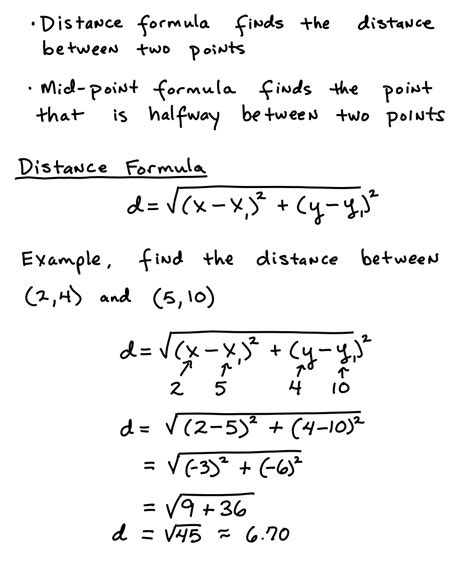 • Distance formula finds the distance
between two points
• Mid-point formula finds the point
that is halfway between two points
Distance Formula
d = √((x − x₁)² + (y − y₁)²)
Example, find the distance between
(2,4) and (5,10)
d = √((x − x₁)² + (y − y₁)²)
↗ ↑ ↑ ↑
2 5 4 10
d = √((2−5)² + (4−10)²)
= √((-3)² + (-6)²)
= √(9 + 36)
d = √45 ≈ 6.70